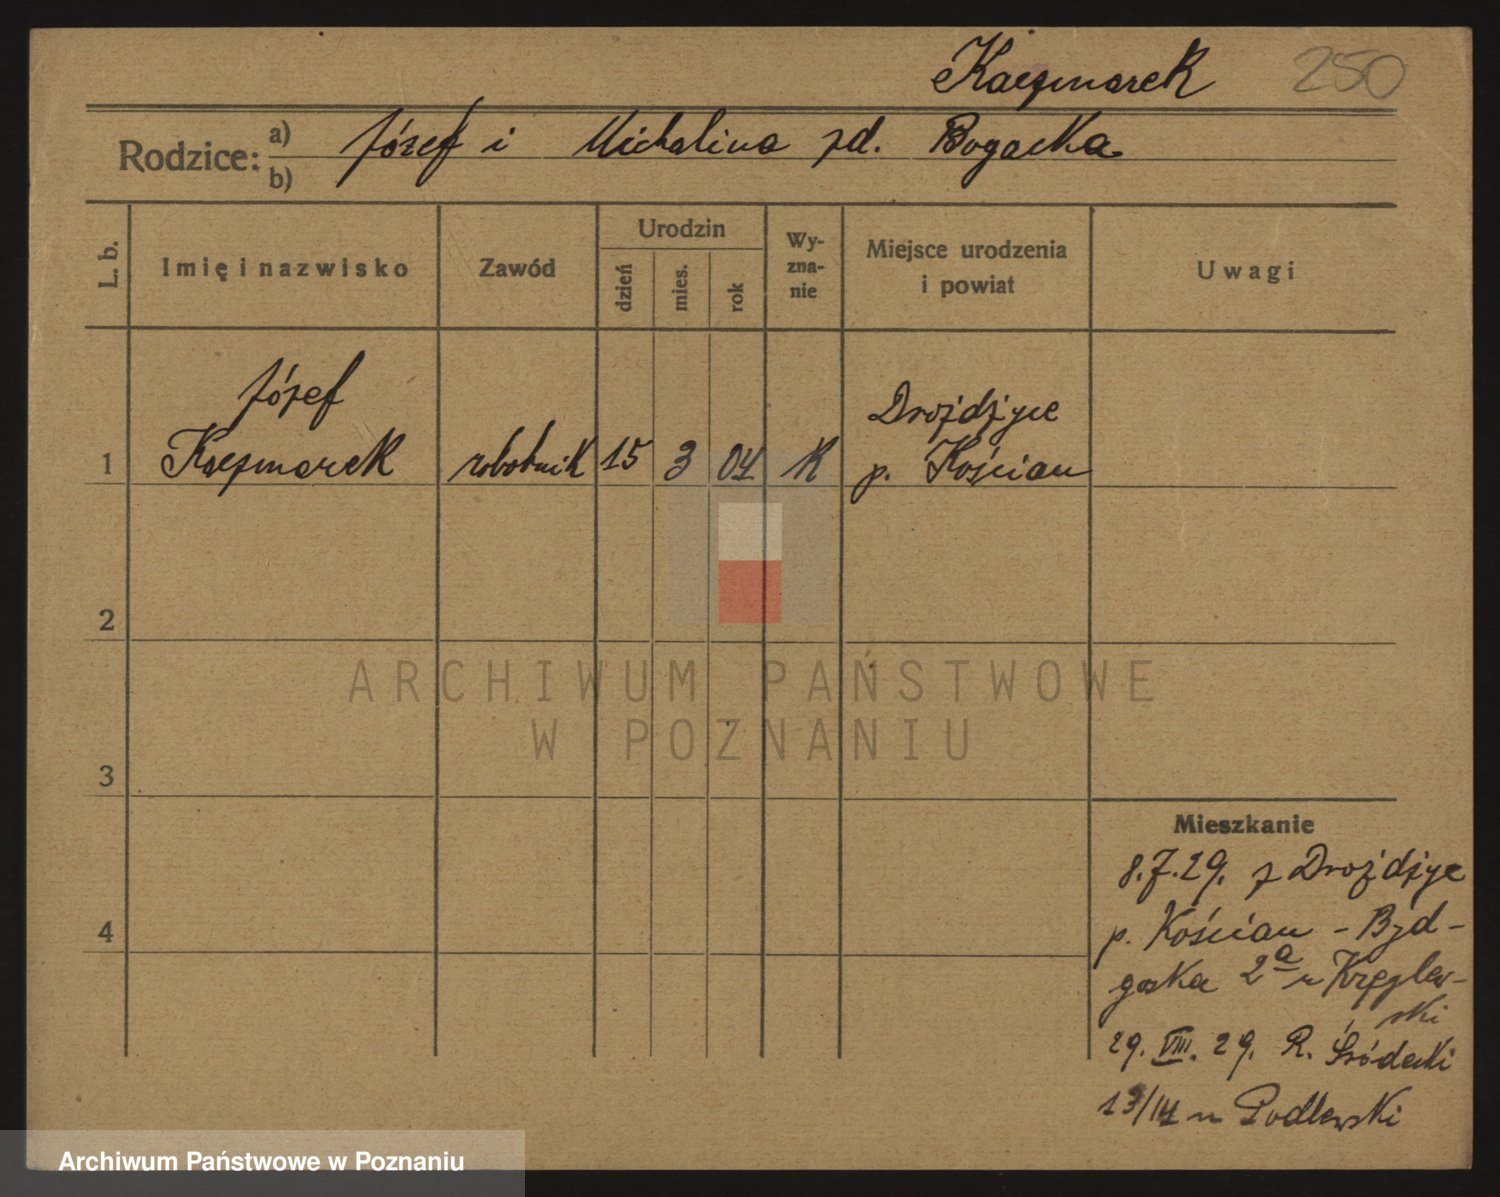 Kaczmarek 250
Rodzice: a) Józef i Michalina zd. Bogacka
b)
L. b. Imię i nazwisko Zawód Urodzin dzień mies. rok Wy-zna-nie Miejsce urodzenia i powiat Uwagi
Józef Drożdżyce
1 Kaczmarek robotnik 15 3 04 K p. Kościan
2
ARCHIWUM PAŃSTWOWE
W POZNANIU
3
Mieszkanie
8.7.29. z Drożdżyc
p. Kościan - Byd-
4
goska 2a u Kręglew-
ski
29. VIII. 29. R. Śródecki
13/14 u Podlewski
Archiwum Państwowe w Poznaniu